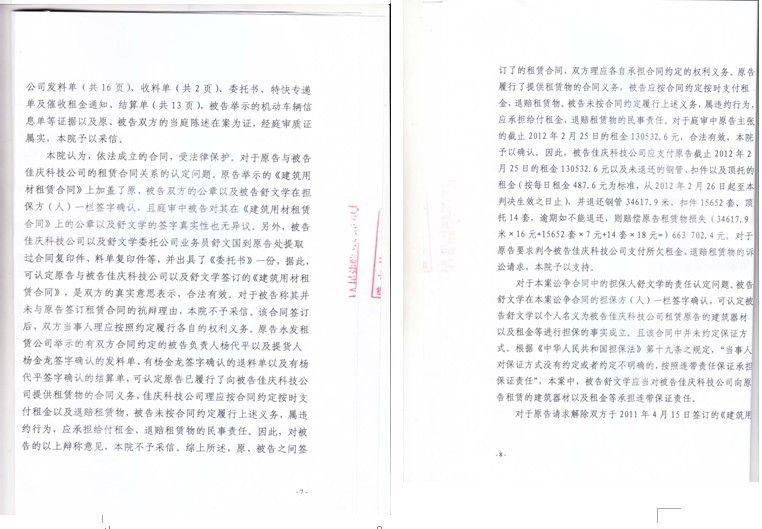 公司发料单（共 16 页）、收料单（共 2 页）、委托书、特快专递
单及催收租金通知、结算单（共 13 页），被告举示的机动车辆信
息单等证据以及原、被告双方的当庭陈述在案为证，经庭审质证
属实，本院予以采信。
本院认为，依法成立的合同，受法律保护。对于原告与被告
佳庆科技公司的租赁合同关系的认定问题。原告举示的《建筑用
材租赁合同》上加盖了原、被告双方的公章以及被告舒文学在担
保方（人）一栏签字确认，且庭审中被告对其在《建筑用材租赁
合同》上的公章以及舒文学的签字真实性也无异议。另外，被告
佳庆科技公司以及舒文学委托公司业务员舒文国到原告处提取
过合同复印件、料单复印件等，并出具了《委托书》一份，据此，
可认定原告与被告佳庆科技公司以及舒文学签订的《建筑用材租
赁合同》，是双方的真实意思表示，合法有效。对于被告称其并
未与原告签订租赁合同的抗辩理由，本院不予采信。该合同签订
后，双方当事人理应按照约定履行各自的权利义务。原告永发租
赁公司举示的有双方合同约定的被告负责人杨代平以及提货人
杨金龙签字确认的发料单、有杨金龙签字确认的退料单以及有杨
代平签字确认的结算单，可认定原告已履行了向被告佳庆科技公
司提供租赁物的合同义务，佳庆科技公司理应按合同约定按时支
付租金以及退赔租赁物，被告未按合同约定履行上述义务，属违
约行为，应承担给付租金、退赔租赁物的民事责任。因此，对被
告的以上辩称意见，本院不予采信。综上所述，原、被告之间签
- 7 -
订了的租赁合同，双方理应各自承担合同约定的权利义务。原告
履行了提供租赁物的合同义务，被告应按合同约定按时支付租
金、退赔租赁物。被告未按合同约定履行上述义务，属违约行为，
应承担给付租金、退赔租赁物的民事责任。对于庭审中原告主张
的截止 2012 年 2 月 25 日的租金 130532.6 元，合法有效，本院
予以确认。因此，被告佳庆科技公司应支付原告截止 2012 年 2
月 25 日的租金 130532.6 元以及未退还的钢管、扣件以及顶托的
租金（按每日租金 487.6 元为标准，从 2012 年 2 月 26 日起至本
判决生效之日止），并退还钢管 34617.9 米、扣件 15652 套、顶
托 14 套，逾期如不能退还，则赔偿原告租赁物损失（34617.9
米×16 元+15652 套×7 元+14 套×18 元=）663 702.4 元。对于
原告要求判令被告佳庆科技公司支付所欠租金、退赔租赁物的诉
讼请求，本院予以支持。
对于本案讼争合同中的担保人舒文学的责任认定问题。被告
舒文学在本案讼争合同的担保方（人）一栏签字确认，可认定被
告舒文学以个人名义为被告佳庆科技公司租赁原告的建筑器材
以及租金等进行担保的事实成立。且该合同中并未约定保证方
式。根据《中华人民共和国担保法》第十九条之规定，“当事人
对保证方式没有约定或者约定不明确的，按照连带责任保证承担
保证责任”，本案中，被告舒文学应当对被告佳庆科技公司向原
告租赁的建筑器材以及租金等承担连带保证责任。
对于原告请求解除双方于 2011 年 4 月 15 日签订的《建筑用
- 8 -